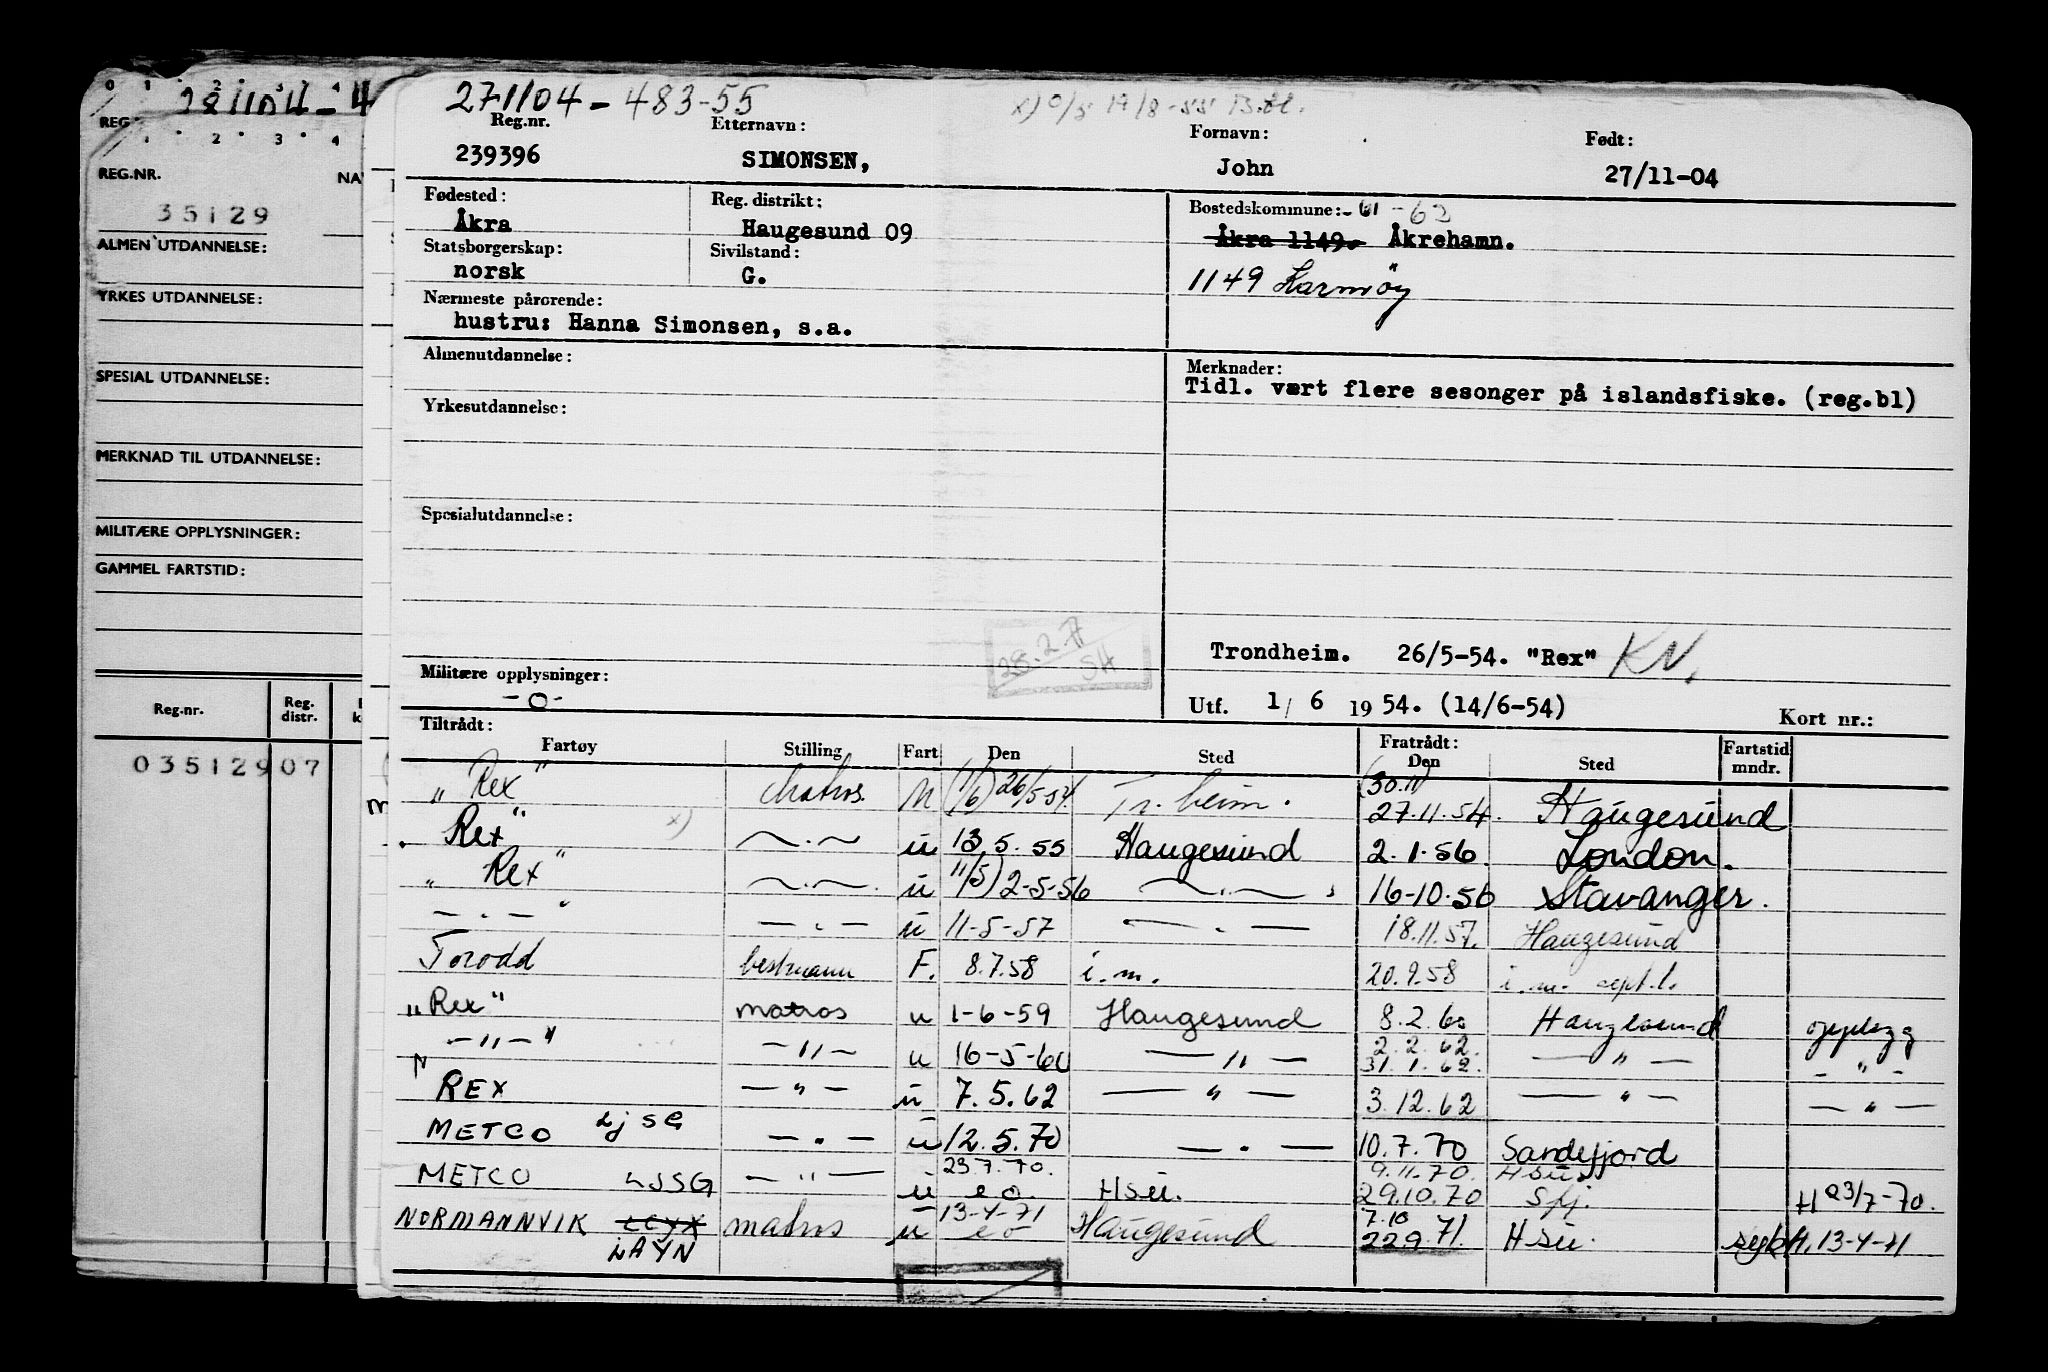 0 1 2 3 4
REG
1 2 3 4
REG.NR.
NA
35129
ALMEN UTDANNELSE:
YRKES UTDANNELSE:
SPESIAL UTDANNELSE:
MERKNAD TIL UTDANNELSE:
MILITÆRE OPPLYSNINGER:
GAMMEL FARTSTID:
Reg.nr. Reg. distr.
03512907
271104-483-55
Reg.nr. Etternavn: Fornavn: Født:
239396 SIMONSEN, John 27/11-04
Fødested: Reg. distrikt: Bostedskommune: -61-62
Åkra Haugesund 09 Åkra 1149. Åkrehamn.
Statsborgerskap: Sivilstand:
norsk G. 1149 Karmøy
Nærmeste pårørende:
hustru: Hanna Simonsen, s.a.
Almenutdannelse: Merknader:
Tidl. vært flere sesonger på islandsfiske. (reg.bl)
Yrkesutdannelse:
Spesialutdannelse:
28.2.77
SH
Trondheim. 26/5-54. "Rex" KN.
Militære opplysninger:
-o-
Utf. 1/6 1954. (14/6-54) Kort nr.:
Tiltrådt: Fratrådt:
Fartøy Stilling Fart Den Sted Den Sted Fartstid mndr.
"Rex" Matros. N (1/6) 26/5-54. Tr.heim. (30.11) 27.11.54. Haugesund
"Rex" x) —.— u 13.5.55 Haugesund 2.1.56. London.
"Rex" —.—. u 11/5) 2-5-56 —.— 16-10-56 Stavanger.
—.—" —.— u 11-5-57 —.— 18.11.57. Haugesund
Torodd bestmann F. 8.7.58 i.m. 20.9.58 i.m. sept.l.
"Rex" matros u 1-6-59 Haugesund 8.2.60 Haugesund opplegg
—"—" —"— u 16-5-60 —"— 2.2.62. 31.1.62. —"— —"—
REX —"— u 7.5.62 —"— 3.12.62 —"— —"—
METCO LJSG —.— u 12.5.70 —.— 10.7.70 Sandefjord
METCO LJSG —"— u 23.7.70. eo. Hsu. 9.11.70. Hsu. 29.10.70 Sfj. H 23/7-70.
NORMANNVIK LCYX LAYN matros u 13-4-71 eo Haugesund 7.10 22.9.71. Hsu. syk H. 13-4-71